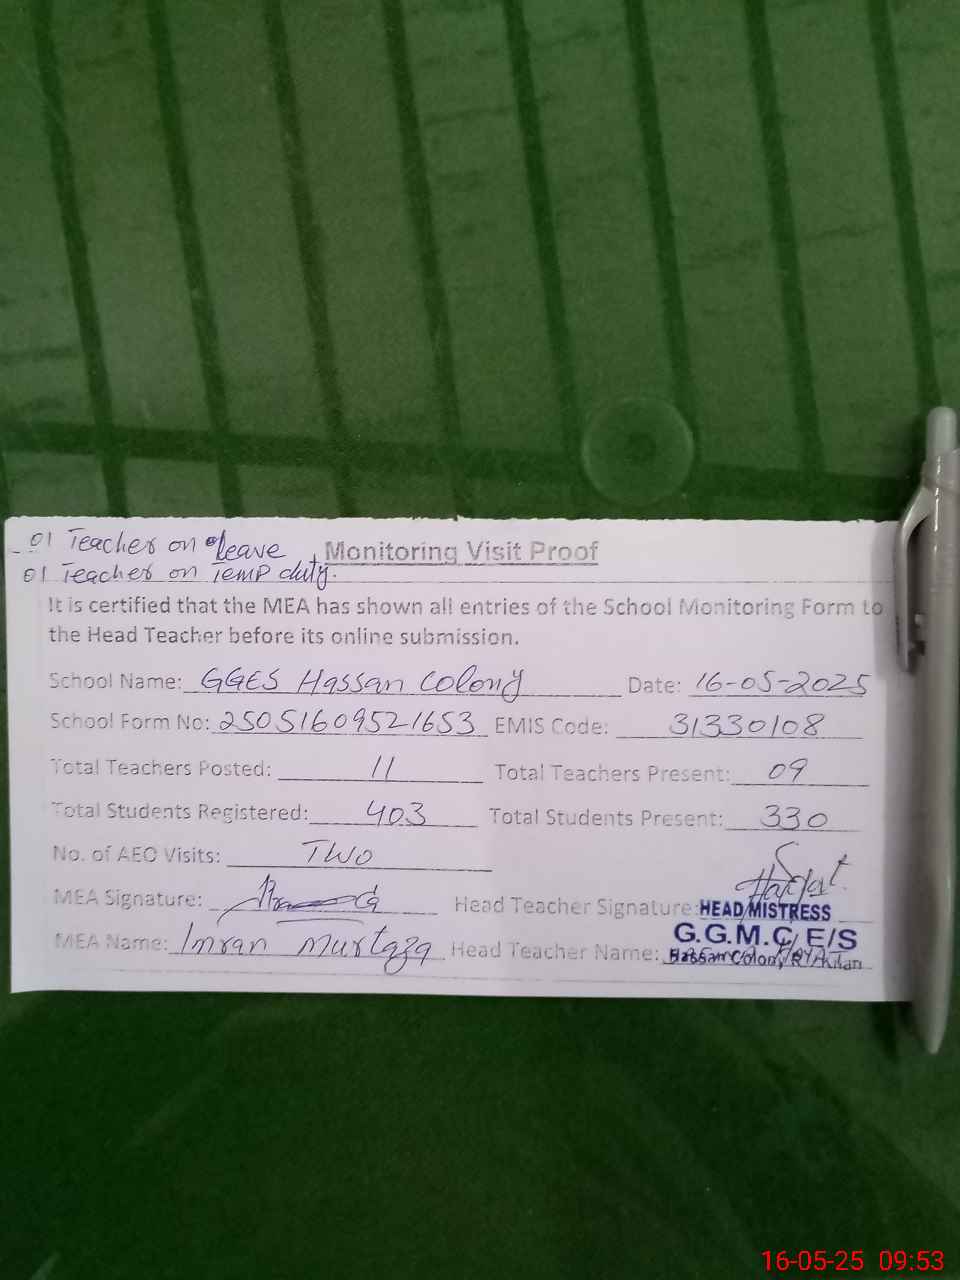 01 Teacher on leave
Monitoring Visit Proof
01 Teacher on Temp duty.
It is certified that the MEA has shown all entries of the School Monitoring Form to
the Head Teacher before its online submission.
School Name: GGES Hassan Colony Date: 16-05-2025
School Form No: 25051609521653 EMIS Code: 31330108
Total Teachers Posted: 11 Total Teachers Present: 09
Total Students Registered: 403 Total Students Present: 330
No. of AEO Visits: Two
MEA Signature: Head Teacher Signature: HEAD MISTRESS
G.G.M.C, E/S
MEA Name: Imran Murtaza Head Teacher Name: Hassan Colony
16-05-25 09:53